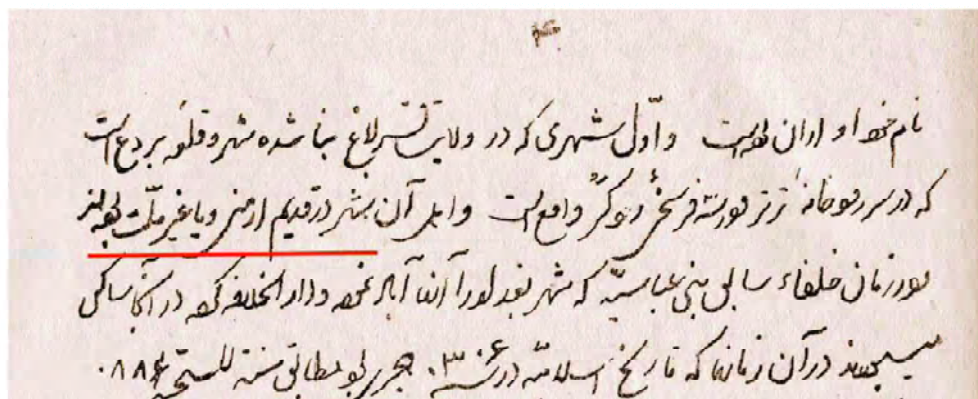 نام خود او اران بوده است و اوّل شهری که در ولایت قراباغ بنا شده شهر و قلعه بردع است
که در سر رودخانهٔ ترتر در سه فرسخیٔ رود کُر واقع است و اهل آن شهر در قدیم ارمنی و یا غیر ملّت بوده‌اند
و در زمان خلفاء سابق بنی عباسیّه که شهر بغداد را آنها آباد نموده و دار الخلافه کرده در آنجا ساکن
میبودند در آن زمانها که تاریخ اسلامیّه در سنه ۳۰۶ هجری بود مطابق سنه